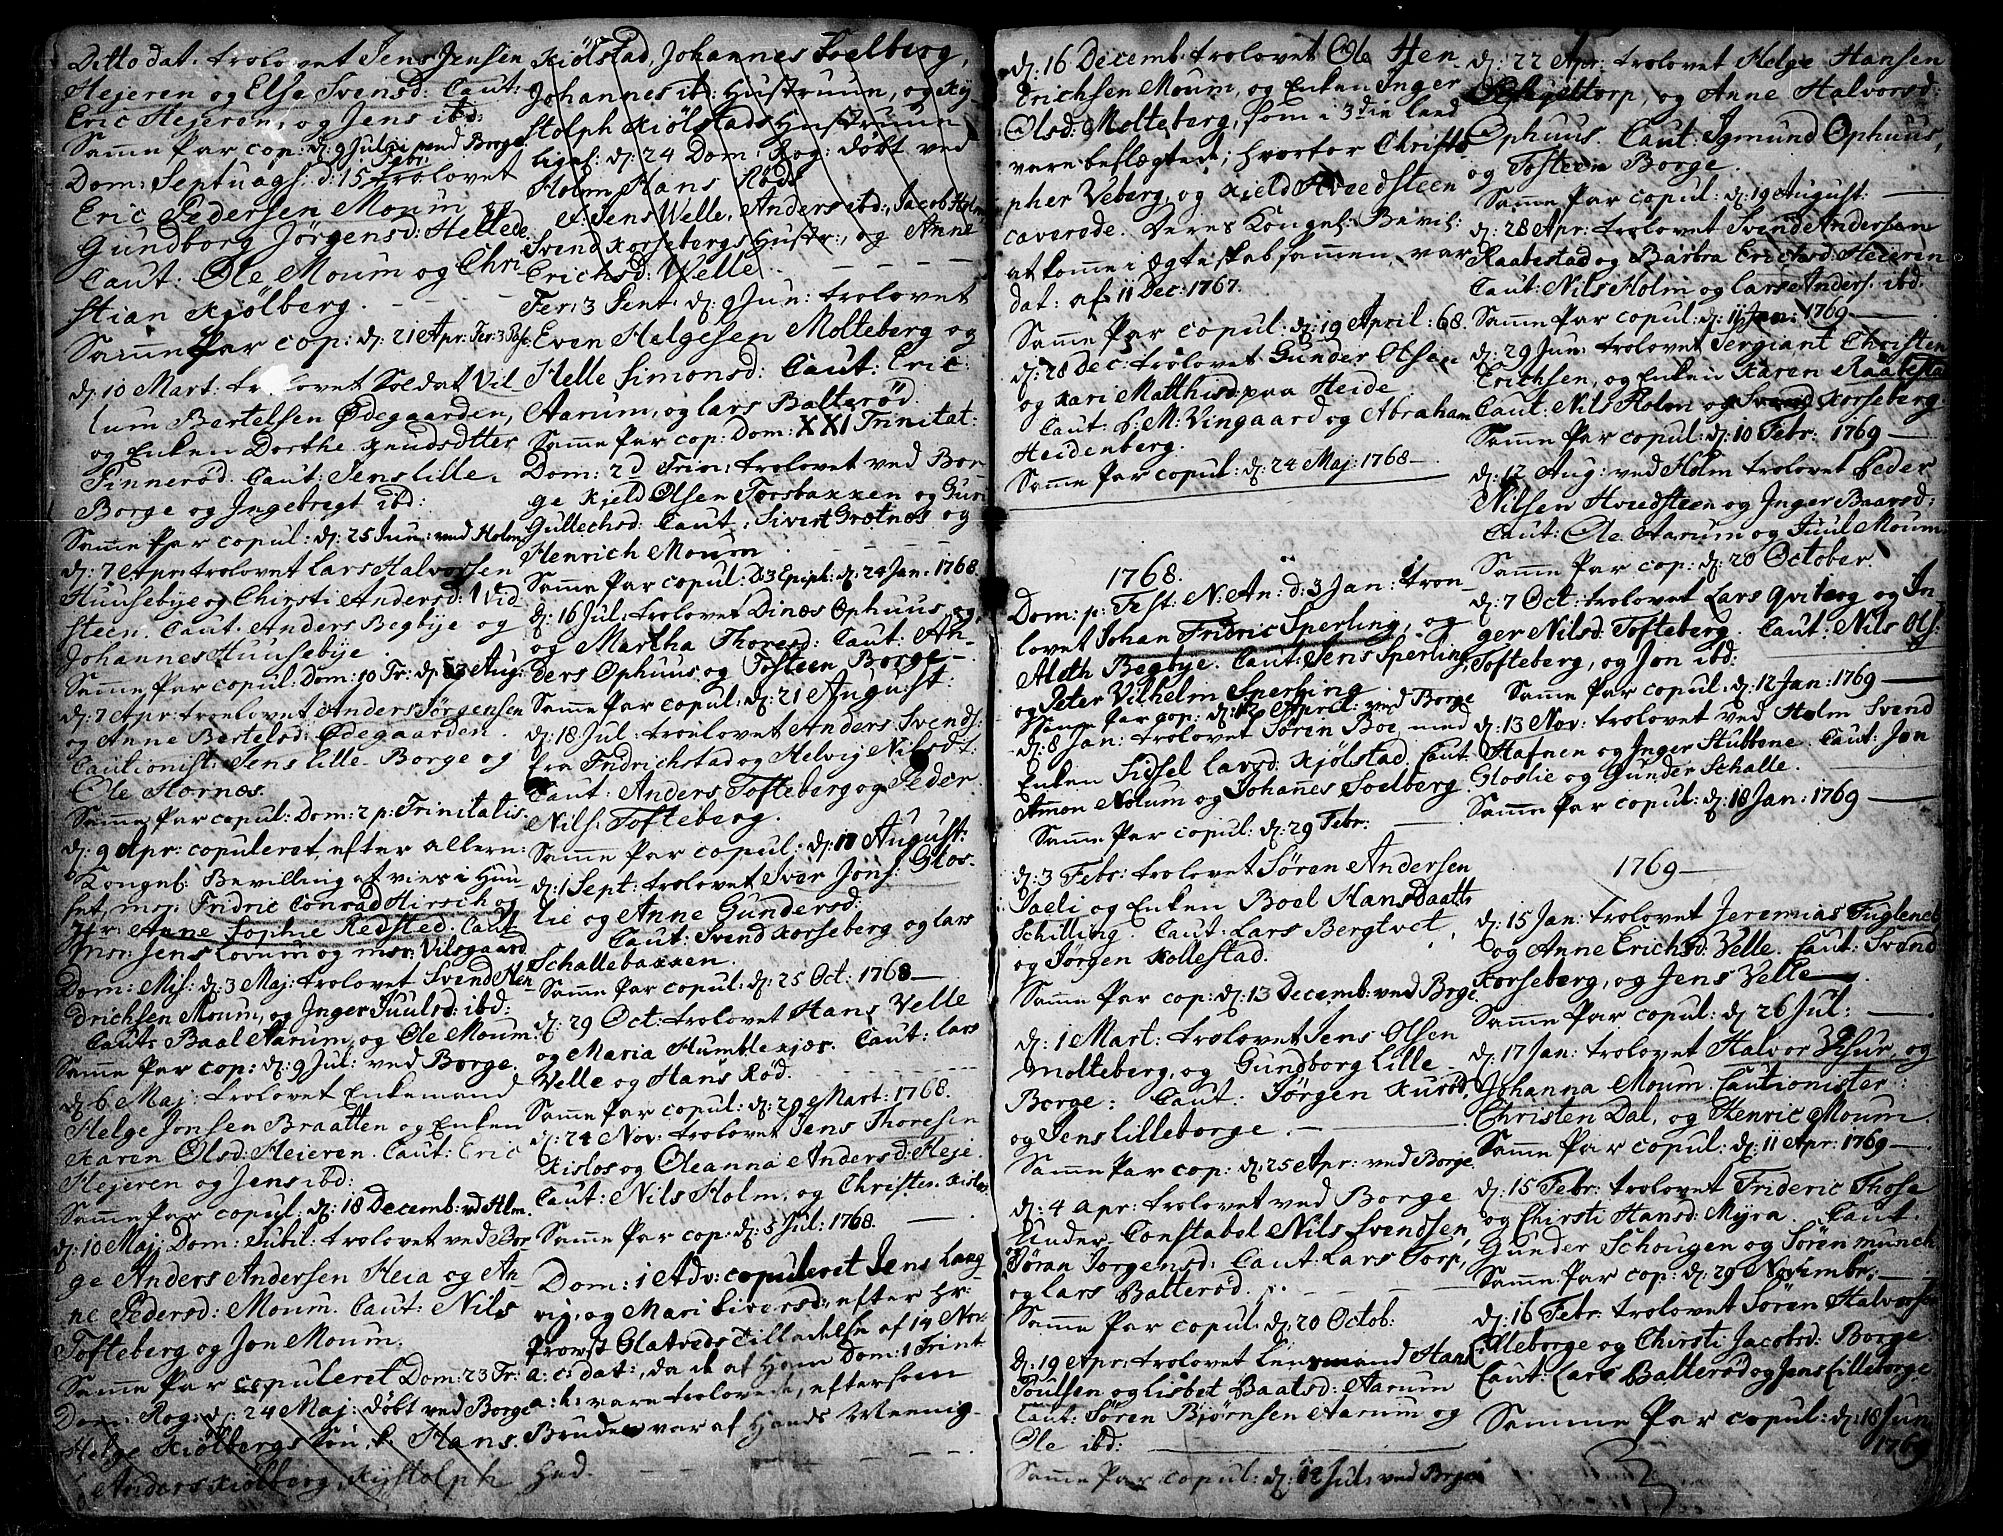 Ditto dat. trolovet Jens Jensen
Hejeren og Else Svensd: Caut:
Eric Hejeren, og Jens ibd:
Samme Par cop: d: 9 Julii ved Borge
Dom: Septuags: d: 15 Febr: trolovet
Eric Pedersen Moum og
Gundborg Jörgensd: Hellede
Caut: Ole Moum og Chri
stian Kiölberg.
Samme Par cop: d: 21 Apr: Fer: 3 Pasc
d: 10 Mart: trolovet Soldat Vil
lum Bertelsen Ødegaarden,
og Enken Dorthe Knudsdtter
Pinnerød. Caut: Jens lille
Borge og Ingebregt ibd:
Samme Par copul: d: 25 Jun: ved Holm
d: 7 Apr: trolovet Lars Halvorsen
Huusebye og Chirsti Andersd: Vid
steen. Caut: Anders Begbye og
Johannes Huusebye.
Samme Par copul: Dom: 10 Tr: d: 23 Aug:
d: 7 Apr: trolovet Anders Jørgensen
og Anne Bertelsd: Ødegaarden.
Cautionist: Jens lille Borge og
Ole Hornæs.
Samme Par copul: Dom: 2 p: Trinitatis.
d: 9 Apr: copuleret, efter allern:
Kongel: Bevilling at vies i Huu
set, msr: Fridric Conrad Hirsch og
Jfr: Anne Sophie Redsted. Caut:
msr: Jens Lovum og msr: Vilsgaard
Dom: Mis: d: 3 Maj: trolovet Svend Hen
drichsen Moum, og Inger Juulsd: ibd:
Caut: Baal Aarum, og Ole Moum.
Samme Par cop: d: 9 Jul: ved Borge.
d: 6 Maj: trolovet Enkemand
Helge Jonsen Braatten og Enken
Karen Olsd: Heieren. Caut: Eric
Hejeren og Jens ibd:
Samme Par copul: d: 18 Decemb: ved Hlm.
d: 10 Maj: Dom: Jubil: trolovet ved Bor
ge Anders Andersen Heia og An
ne Pedersd: Moum. Caut: Nils
Tofteberg og Jon Moum.
Samme Par copuleret Dom: 23 Tr:
Dom: Rog: d: 24 Maj: døbt ved Borge
Helge Kiölbergs Søn, k: Hans.
Anders Kiölberg, Kystolph
Kiölstad, Johannes Soelberg,
Johannes ibd: Hustruun, og Ky
stolph Kiölstads Hustruun
ligel: d: 24 Dom: Rog: døbt ved
Holm Hans Röds
f: Jens Welle, Anders ibd:, Jacob Holm
Svend Korsebergs Hustr:, og Anne
Erichsd: Welle.
Fer: 3 Pent: d: 9 Jun: trolovet
Even Helgesen Molteberg og
Helle Simonsd: Caut: Eric
Aarum, og Lars Balterød.
Samme Par cop: Dom: XXI Trinitat:
Dom: 2d Trin: trolovet ved Bor
ge Kjeld Olsen Torsbakken og Guri
Gullechsd: Caut: Sivert Grötnes og
Henrich Moum
Samme Par copul: D: 3 Epiph: d: 24 Jan: 1768
d: 16 Jul: trolovet Dines Ophuus
og Martha Thoresd: Caut: An
ders Ophuus og Tosteen Borge
Samme Par copul: d: 21 August:
d: 18 Jul: troelovet Anders Svends:
fra Fridrichstad og Helvig Nilsdt:
Caut: Anders Tofteberg og Peder
Nils: Tofteberg.
Samme Par copul: d: 11 August:
d: 1 Sept: trolovet Iver Jons: Glos
lie og Anne Gundersd:
Caut: Svend Korseberg og Lars
Schallebakken.
Samme Par copul: d: 25 Oct: 1768
d: 29 Oct: trolovet Hans Velle
og Maria Humblekjær. Caut: Lars
Velle og Hans Rød.
Samme Par copul: d: 29 Mart: 1768.
d: 24 Nov: trolovet Jens Thoresen
Kislos og Oleanna Andersd: Heje
Caut: Nils Holm, og Christen Kislos
Samme Par cop: d: 5 Jul: 1768.
Dom: 1 Adv: copuleret Jens Lang
vig, og Mari Siversd:, efter Hr:
Provst Glatveds Tilladelse af 14 Nov:
a: c: dat:, da de af Ham Dom: 1 Trint
a: h: vare trolovede, eftersom
Bruden var af Hands Menig
hed.
d: 16 Decemb: trolovet Ole Hen
Erichsen Moum, og Enken Inger
Olsd: Molteberg, som i 3die leed
vare beslægtede; hvorfor Christo
pher Veberg og Kield Hvedsteen
caverede. Deres Kongel: Bevil:
at komme i Ægteskab sammen, var
dat: af 11 Dec: 1767.
Samme Par copul: d: 19 April: 68.
d: 28 Dec: trolovet Gunder Olsen
og Kari Matthisd: paa Heide
Caut: S: M: Vingaard og Abraham
Heidenberg.
Samme Par copul: d: 24 Maj: 1768
1768.
Dom: p: Fest: N: An: d: 3 Jan: tro
lovet Johan Fridric Sperling, og
Aleth Begbye. Caut: Jens Sperling,
og Peter Vilhelm Sperling
Samme Par cop: d: 12 April: ved Borge
d: 8 Jan: trolovet Søren Boe med
Enken Sidsel Larsd: Kjølstad. Caut:
Amon Nolum og Johanes Soelberg
Samme Par copul: d: 29 Febr:
d: 3 Febr: trolovet Søren Andersen
Jaeli og Enken Boel Hansdaatt:
Schilling. Caut: Lars Bergtvet,
og Jørgen Kollestad.
Samme Par cop: d: 13 Decemb: ved Borge
d: 1 Mart: trolovet Jens Olsen
Molteberg, og Gundborg Lille
Borge: Caut: Jørgen Kurød,
og Jens Lilleborge.
Samme Par cop: d: 25 Apr: ved Borge
d: 4 Apr: trolovet ved Borge
Under-Constabel Nils Svendsen,
Jöran Jorgensd: Caut: Lars Torp,
og Lars Balterød.
Samme Par copul: d: 20 Octob:
d: 19 Apr: trolovet Lensmand Hans
Poulsen og Lisbet Baalsd: Aarum
Caut: Søren Bjørnsen Aarum og
Ole ibd:
Samme Par copul: d: 12 Jul: ved Borge
d: 22 Apr: trolovet Helge Hansen
Schjeltorp, og Anne Halvorsd:
Ophuus. Caut: Igmund Ophuus,
og Tosteen Borge.
Samme Par copul: d: 19 August:
d: 28 Apr: trolovet Svend Andersen
Raabestad og Barbra Erichsd: Heieren
Caut: Nils Holm og Lars Anders: ibd.
Samme Par copul: d: 11 Jan: 1769
d: 29 Jun: trolovet Sergiant Christen
Erichsen, og Enken Karen Raabestad
Caut: Nils Holm og Svend Korseberg
Samme Par copul: d: 10 Febr: 1769
d: 12 Aug: ved Holm trolovet Peder
Nilsen Hvedsteen og Inger Baarsd:
Caut: Ole Aarum og Juul Moum
Samme Par cop: d: 20 October.
d: 7 Oct: trolovet Lars Qviberg og In
ger Nilsd: Tofteberg. Caut: Nils Ols:
Tofteberg, og Jon ibd:
Samme Par copul: d: 12 Jan: 1769
d: 13 Nov: trolovet ved Holm Svend
Hafnen og Inger Stubbene. Caut: Jon
Gloslie og Gunder Schalle.
Samme Par copul: d: 18 Jan: 1769
1769
d: 15 Jan: trolovet Jeremias Fugleneb
og Anne Erichsd: Velle. Caut: Svend
Korseberg, og Jens Velle
Samme Par copul: d: 26 Jul:
d: 17 Jan: trolovet Halvor og
Johanna Moum. Cautionister:
Christen Dal, og Henric Moum.
Samme Par copul: d: 11 Apr: 1769
d: 15 Febr: trolovet Frideric Thosa
og Chirsti Hansd: Myra. Caut:
Gunder Schougen og Søren Munch
Samme Par cop: d: 29 Novembr:
d: 16 Febr: trolovet Søren Halvorsen
Lilleborge og Chirsti Jacobsd: Borge.
Caut: Lars Balterød og Jens Lilleborge
Samme Par copul: d: 18 Jun:
1769